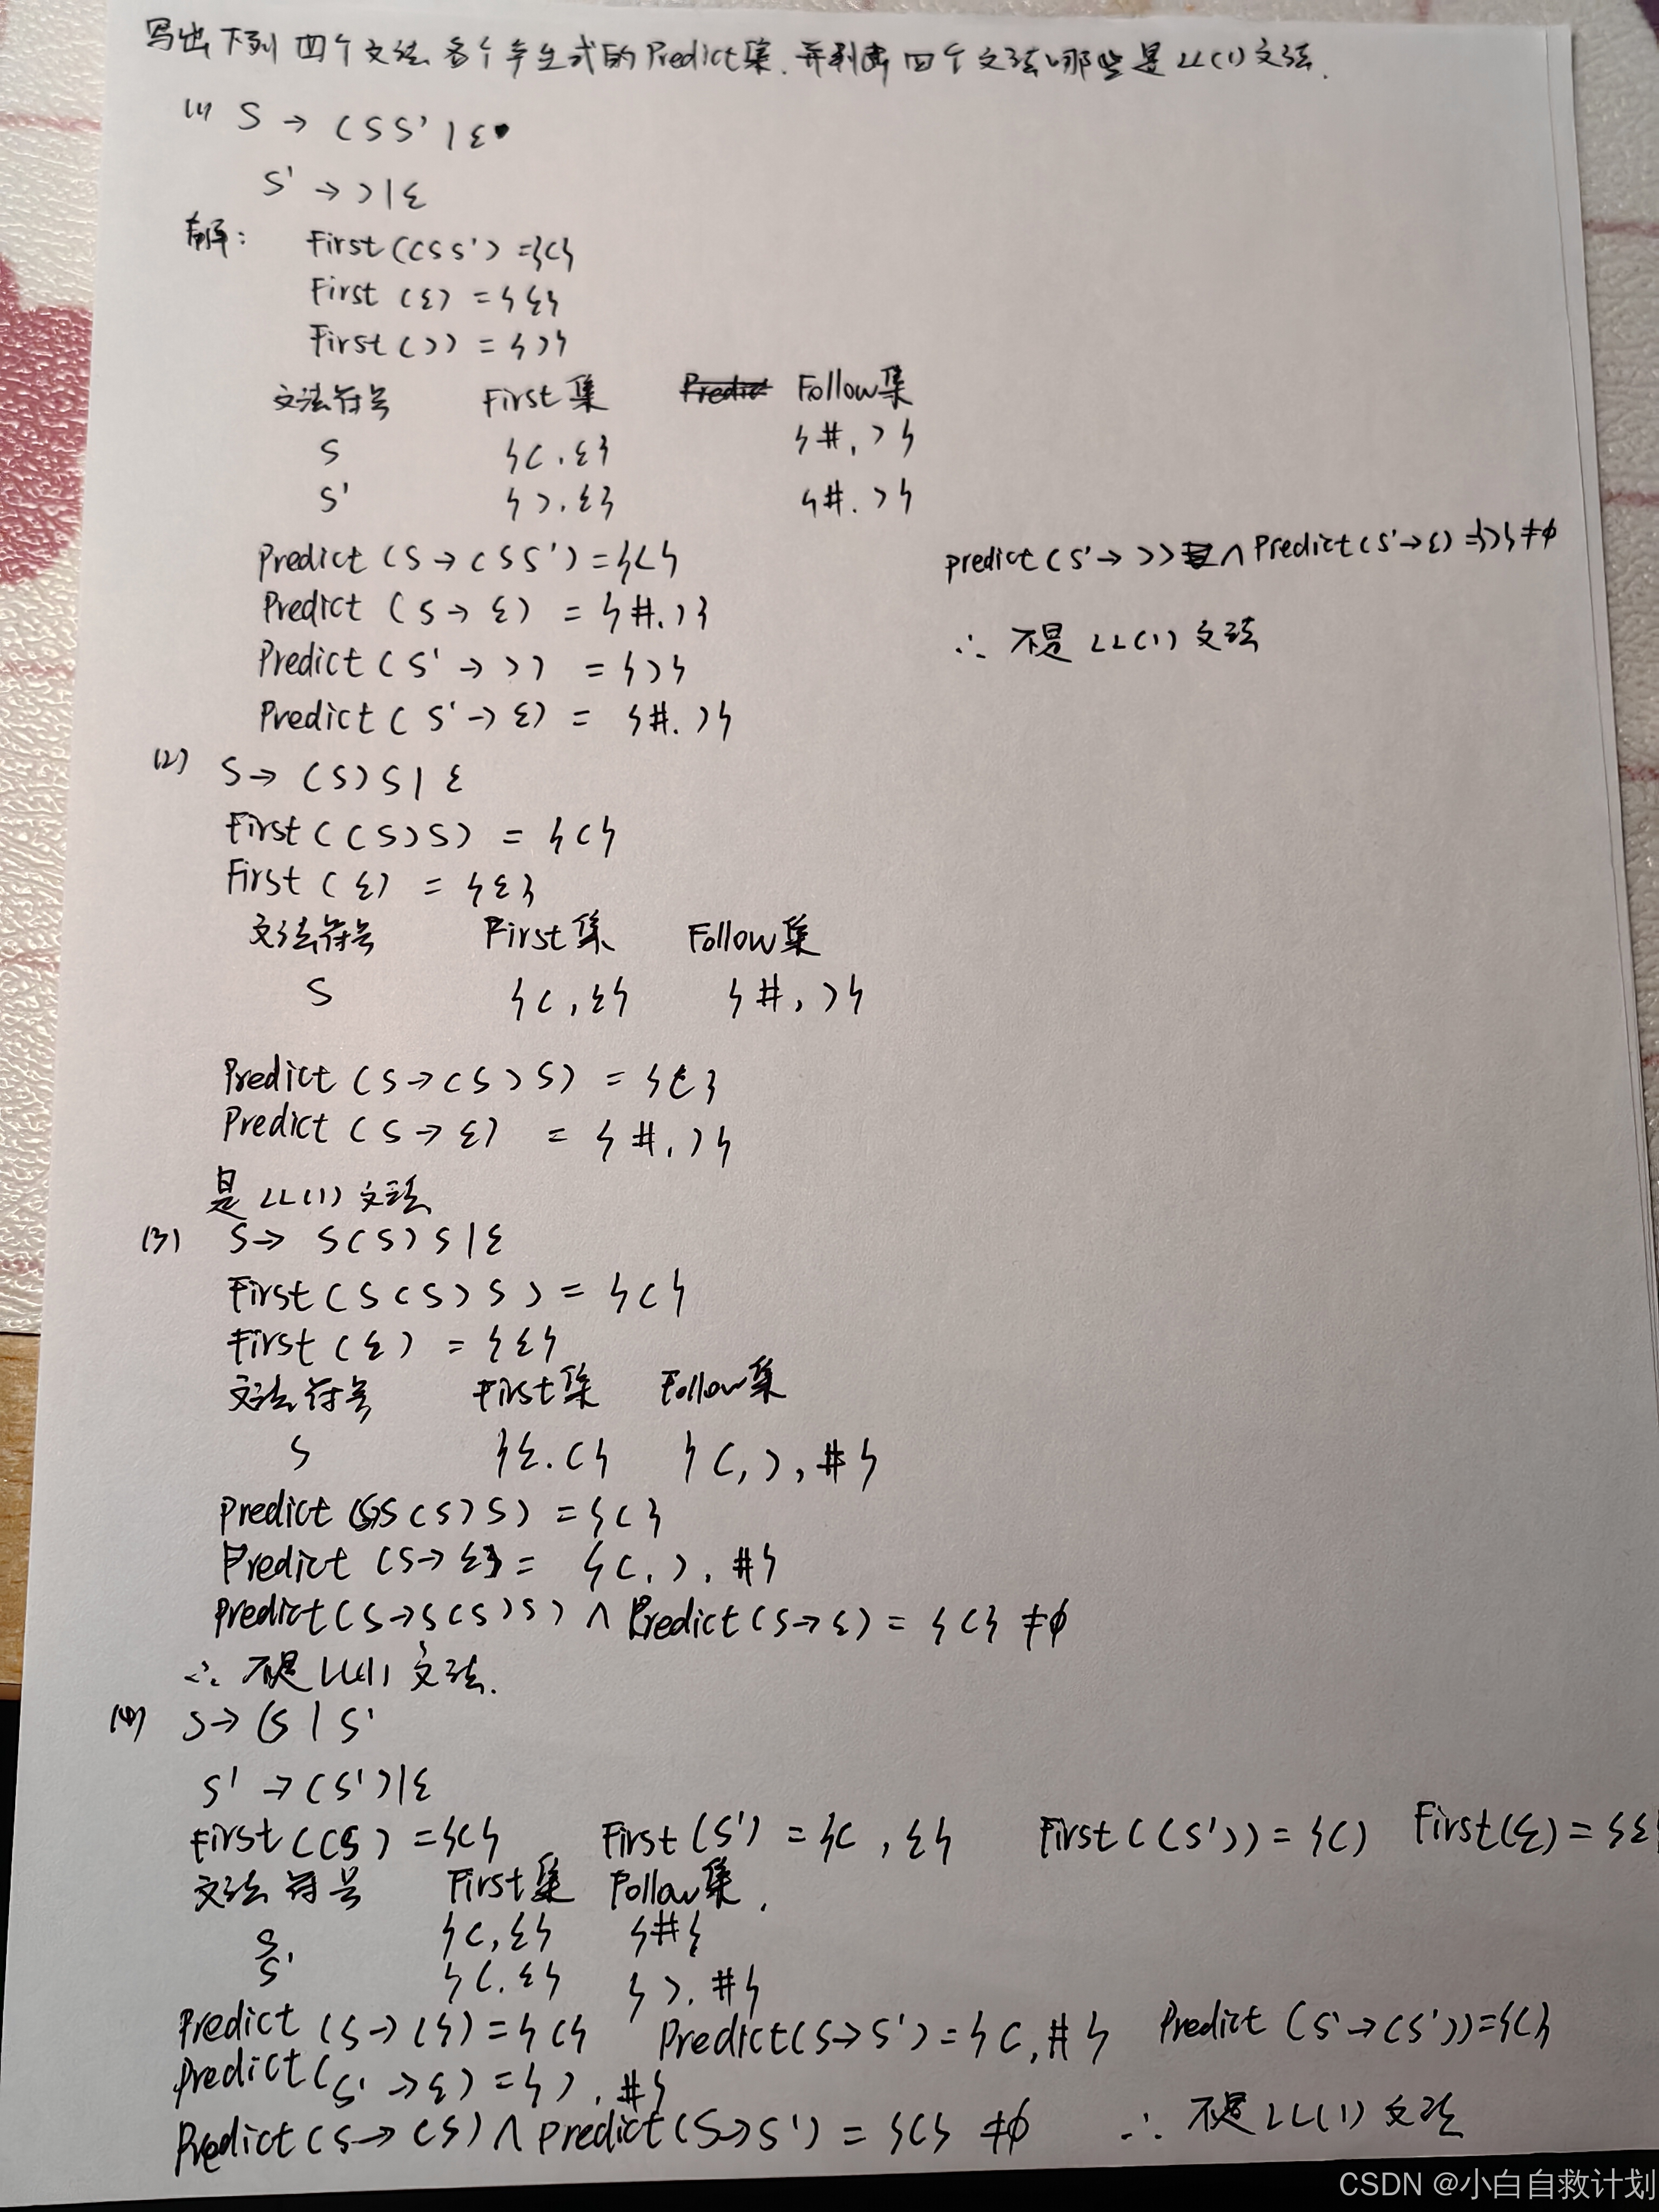 写出下列四个文法各个产生式的Predict集.并判断四个文法哪些是LL(1)文法.
(1) S → (SS' | ε
S' → ) | ε
解: First((SS') = {(}
First(ε) = {ε}
First()) = {)}
文法符号 First集 Follow集
S {(, ε} {#, )}
S' {), ε} {#, )}
Predict(S → (SS') = {(}
Predict(S → ε) = {#, )}
Predict(S' → )) = {)}
Predict(S' → ε) = {#, )}
predict(S' → )) ∧ Predict(S' → ε) = {)} ≠ φ
∴ 不是LL(1)文法
(2) S → (S)S | ε
First((S)S) = {(}
First(ε) = {ε}
文法符号 First集 Follow集
S {(, ε} {#, )}
Predict(S → (S)S) = {(}
Predict(S → ε) = {#, )}
是LL(1)文法
(3) S → S(S)S | ε
First(S(S)S) = {(}
First(ε) = {ε}
文法符号 First集 Follow集
S {ε, (} {(, ), #}
Predict(S(S)S) = {(}
Predict(S → ε) = {(, ), #}
Predict(S → S(S)S) ∧ Predict(S → ε) = {(} ≠ φ
∴ 不是LL(1)文法.
(4) S → (S | S'
S' → (S') | ε
First((S) = {(} First(S') = {(, ε} First((S')) = {() First(ε) = {ε
文法符号 First集 Follow集.
S {(, ε} {#}
S' {(, ε} {), #}
Predict(S → (S) = {(} Predict(S → S') = {(, #} Predict(S' → (S')) = {(}
Predict(S' → ε) = {), #}
Predict(S → (S) ∧ Predict(S → S') = {(} ≠ φ ∴ 不是LL(1)文法
CSDN @小白自救计划